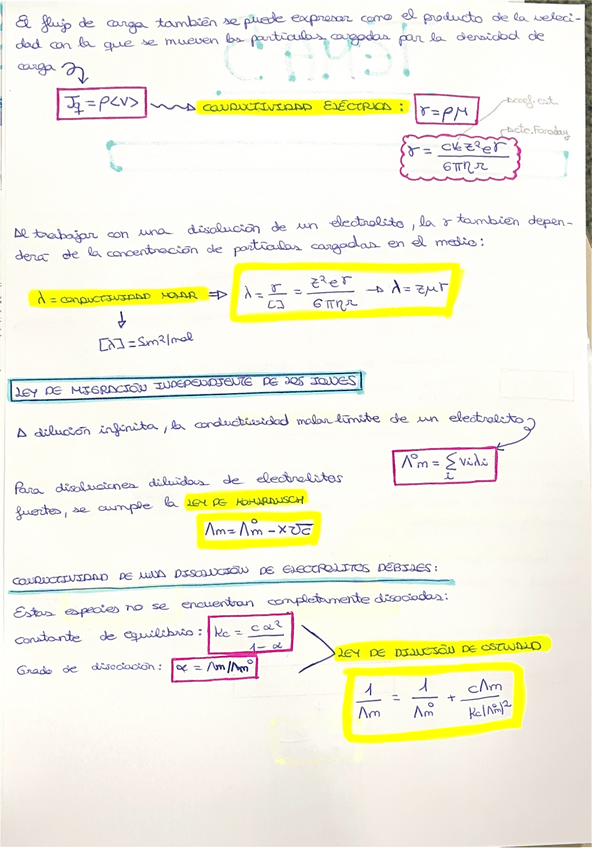 El flujo de carga también se puede expresar como el producto de la veloci-
dad con la que se mueven las partículas cargadas por la densidad de
carga
Jq = ρ<v> CONDUCTIVIDAD ELÉCTRICA: γ = ρμ coef. est.
cte. Faraday
γ = ck z²eF / 6πηr
Al trabajar con una disolución de un electrolito, la γ también depen-
derá de la concentración de partículas cargadas en el medio:
λ = CONDUCTIVIDAD MOLAR ⇒ λ = γ / [ ] = z²eF / 6πηr → λ = zμF
[λ] = Sm²/mol
LEY DE MIGRACIÓN INDEPENDIENTE DE LOS IONES
A dilución infinita, la conductividad molar límite de un electrolito
Λ°m = Σi νiλi
Para disoluciones diluidas de electrolitos
fuertes, se cumple la LEY DE KOHLRAUSCH
Λm = Λ°m − K√c
CONDUCTIVIDAD DE UNA DISOLUCIÓN DE ELECTROLITOS DÉBILES:
Estas especies no se encuentran completamente disociadas:
constante de equilibrio: Kc = cα² / 1−α
Grado de disociación: α = Λm/Λm°
LEY DE DILUCIÓN DE OSTWALD
1/Λm = 1/Λ°m + cΛm / Kc(Λ°m)²